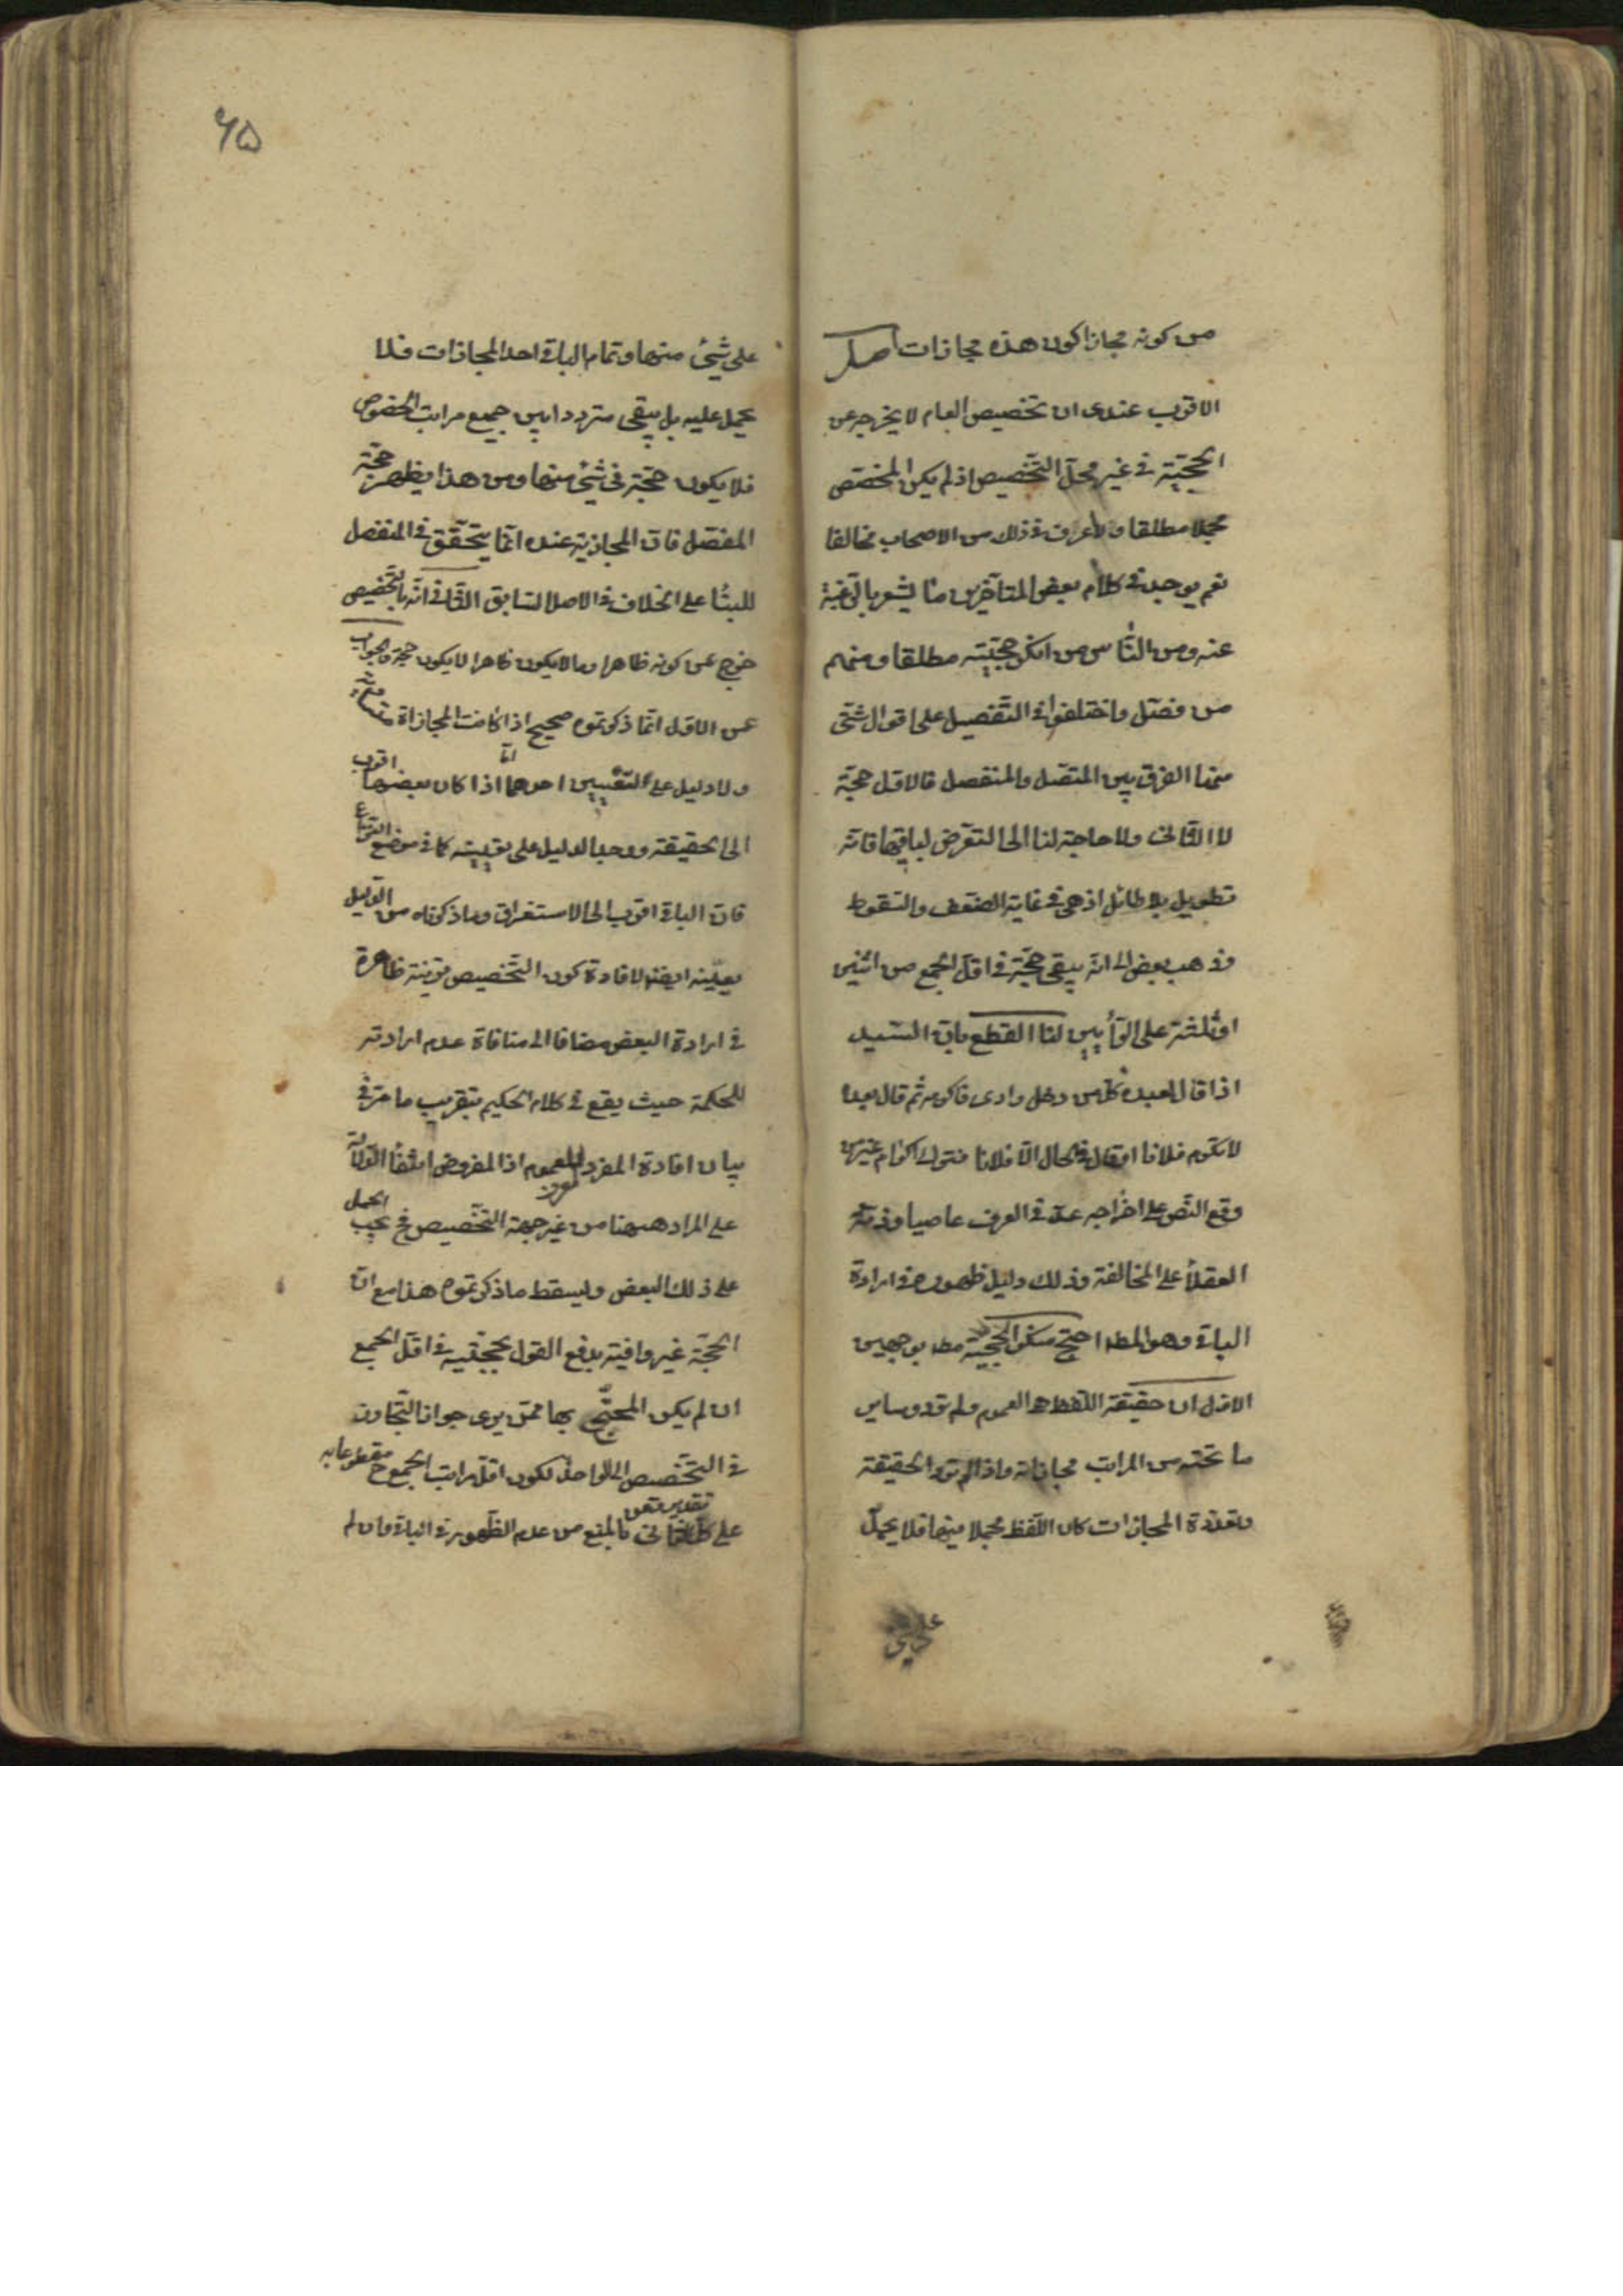 من كونه مجازا كون هذه مجازات اصل
الاقرب عندى ان تخصيص العام لا يخرجه عن
الحجيّة فى غير محلّ التخصيص اذ لم يكن المخصّص
مجملا مطلقا ولا اعرف فى ذلك من الاصحاب مخالفا
نعم يوجد فى كلام بعض المتأخرين ما يشعر بالرّغبة
عنه ومن النّاس من انكر حجيّته مطلقا ومنهم
من فصّل واختلفوا فى التّفصيل على اقوال شتّى
منها الفرق بين المتّصل والمنفصل فالاوّل حجّة
لا الثّانى ولا حاجة لنا الى التعرّض لباقيها فانّه
تطويل بلا طائل اذ هى فى غاية الضّعف والسّقوط
وذهب بعض الى انّه يبقى حجّة فى اقلّ الجمع من اثنين
او ثلثة على الرّأيين لنا القطع بانّ السّيد
اذا قال لعبده كلّ من دخل دارى فاكرمه ثم قال بعد
لا تكرم فلانا او قال فى الحال الّا فلانا فترك اكرام غير من
وقع النّص على اخراجه عدّ فى العرف عاصيا وذمّه
العقلاء على المخالفة وذلك دليل ظهوره فى ارادة
الباقى وهو المط احتجّ منكر الحجيّة مط بوجهين
الاوّل ان حقيقة اللّفظ هى العموم ولم ترد وساير
ما تحته من المراتب مجازاته واذا لم ترد الحقيقة
وتعدّدة المجازات كان اللّفظ مجملا فيها فلا يحمل
على شئ
على شئ منها وتمام الباقى احد المجازات فلا
يحمل عليه بل يبقى مترددا بين جميع مراتب الخصوص
فلا يكون حجّة فى شئ منها ومن هذا يظهر حجّة
المفصّل فانّ المجازية عنده انّما يتحقّق فى المنفصل
للبناء على الخلاف فى الاصل السّابق الثّانى انّه بالتّخصيص
خرج عن كونه ظاهرا وما لا يكون ظاهرا لا يكون حجّة والجواب
عن الاوّل انّما ذكرتموه صحيح اذا كانت المجازاة متساوية
ولا دليل على تعيين احدهما امّا اذا كان بعضها اقرب
الى الحقيقة ووجد الدليل على تعيينه كما فى موضع النّزاع
فانّ الباقى اقرب الى الاستغراق وما ذكرناه من الدّليل
يعيّنه ايضا لافادة كون التّخصيص قرينة ظاهرة
فى ارادة البعض مضافا الى منافاة عدم ارادته
للحكمة حيث يقع فى كلام الحكيم بتقريب ما مرّ فى
بيان افادة المفرد المعرّف للعموم اذ المفروض انتفاء الدّلالة
على المراد هيهنا من غير جهة التّخصيص فح يجب الحمل
على ذلك البعض وليسقط ما ذكرتموه هذا مع انّ
الحجّة غير وافية بدفع القول بحجيّته فى اقلّ الجمع
ان لم يكن المحتجّ بها ممّن يرى جواز التّجاوز
فى التخصيص الى الواحد لكون اقلّ مراتب الجمع ح مقطوعا به
على كل تقدير وعن الثانى بالمنع من عدم الظّهور فى الباقى وان لم
۶۵